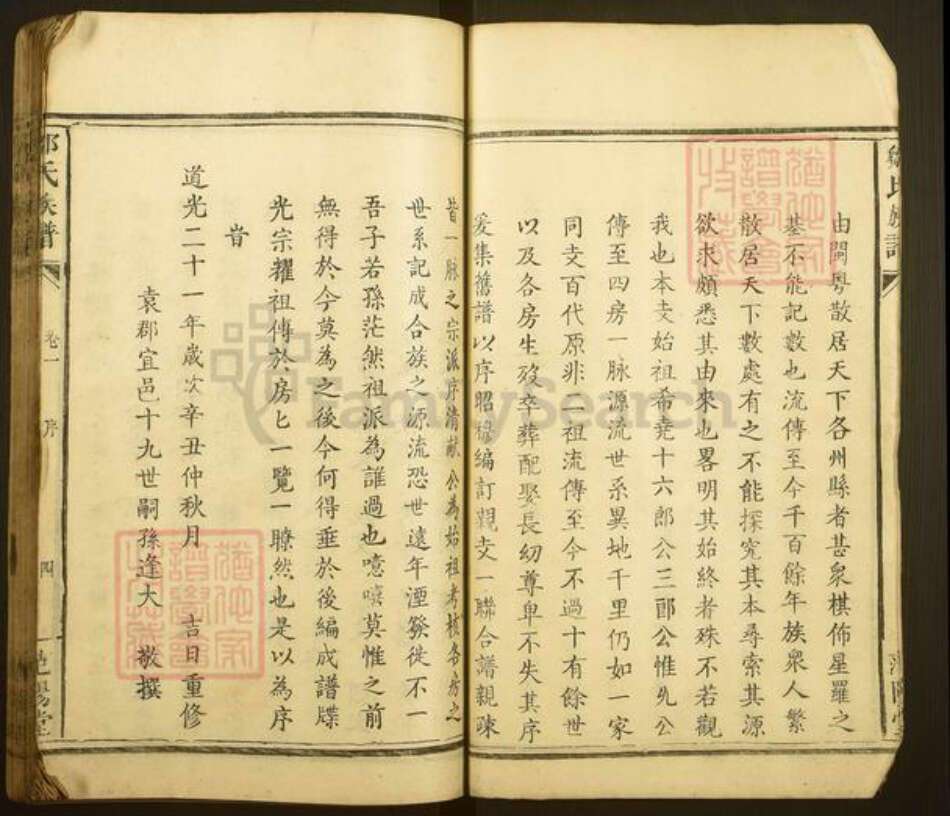 由閩粵散居天下各州縣者甚衆棋佈星羅之
基不能記數也流傳至今千百餘年族衆人繁
散居天下數處有之不能探究其本尋索其源
欲求頗悉其由來也畧明其始終者殊不若觀
我也本支始祖希堯十六郎公三郎公惟允公
傳至四房一脉源流世系異地千里仍如一家
同支百代原非二祖流傳至今不過十有餘世
以及各房生歿卒葬配娶長幼尊卑不失其序
爰集舊譜以序昭穆編訂親支一聯合譜親疎
皆一脉之宗派序清献公為始祖考核各房之
世系記成合族之源流恐世遠年湮發徙不一
吾子若孫茫然祖派為誰過也噫嘻莫惟之前
無得於今莫為之後今何得垂於後編成譜牒
光宗耀祖傳於房匕一覽一瞭然也是以為序
旹
道光二十一年歲次辛丑仲秋月 吉日重修
袁郡宜邑十九世嗣孫逢大 敬撰
氏族譜 卷一 序 四
FamilySearch